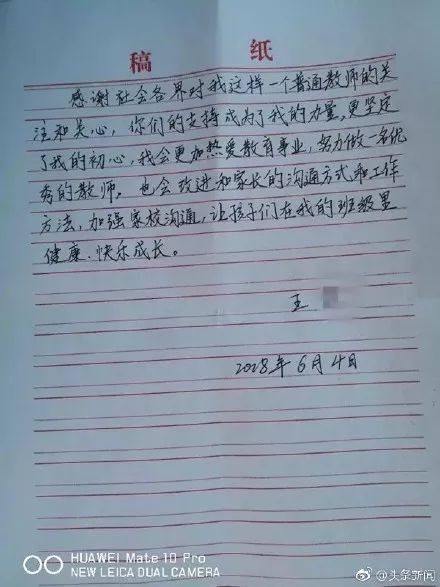 稿 纸
感谢社会各界对我这样一个普通教师的关
注和关心，你们的支持成为了我的力量，更坚定
了我的初心，我会更加热爱教育事业，努力做一名优
秀的教师。也会改进和家长的沟通方式和工作
方法，加强家校沟通，让孩子们在我的班级里
健康、快乐成长。
王
2028年6月4日
HUAWEI Mate 10 Pro
NEW LEICA DUAL CAMERA
@头条新闻